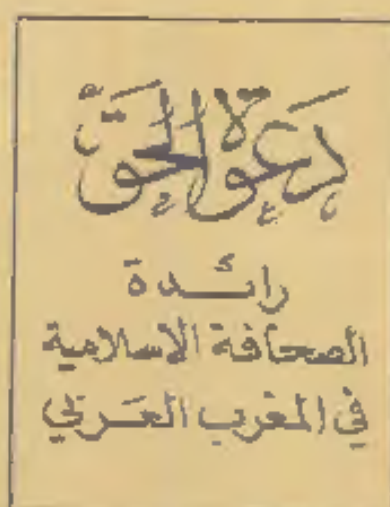 دعوة الحق
رائـدة
الصحافة الاسلامية
في المغرب العـربي